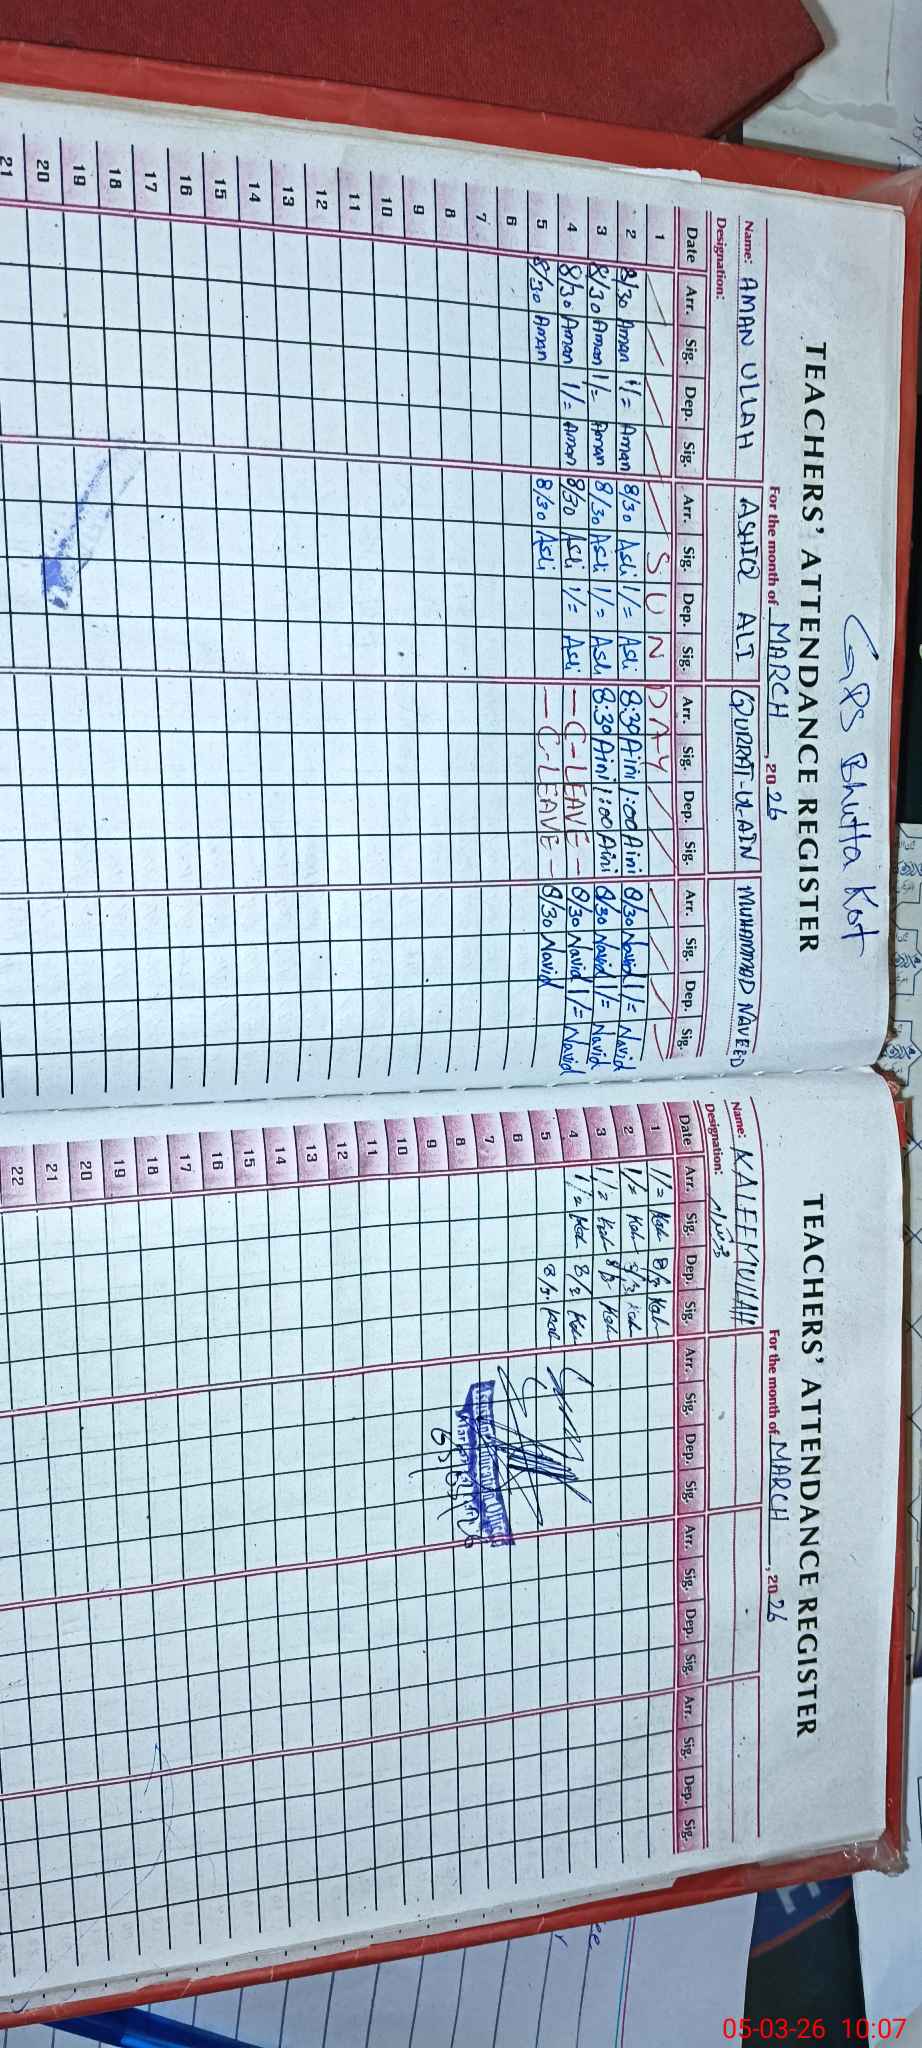 GPS Bhutta Kot
TEACHERS' ATTENDANCE REGISTER
For the month of MARCH, 2026
Name: AMAN ULLAH ASHIQ ALI QURRAT-UL-AIN MUHAMMAD NAVEED
Designation:
Date Arr. Sig. Dep. Sig. Arr. Sig. Dep. Sig. Arr. Sig. Dep. Sig. Arr. Sig. Dep. Sig.
1 SUNDAY
2 8/30 Aman 1/= Aman 8/30 Asli 1/= Asli 8:30 Aini 1:00 Aini 8/30 Navid 1/= Navid
3 8/30 Aman 1/= Aman 8/30 Asli 1/= Asli 8:30 Aini 1:00 Aini 8/30 Navid 1/= Navid
4 8/30 Aman 1/= Aman 8/30 Asli 1/= Asli — C-LEAVE — 8/30 Navid 1/= Navid
5 8/30 Aman 8/30 Asli — C-LEAVE — 8/30 Navid
6
7
8
9
10
11
12
13
14
15
16
17
18
19
20
21
TEACHERS' ATTENDANCE REGISTER
For the month of MARCH, 2026
Name: KALEEMULAH
Designation:
Date Arr. Sig. Dep. Sig. Arr. Sig. Dep. Sig. Arr. Sig. Dep. Sig. Arr. Sig. Dep. Sig.
1 1/=
2 1/=
3 1/=
4 1/=
5
6
7
8
9
10
11
12
13
14
15
16
17
18
19
20
21
22
05-03-26 10:07